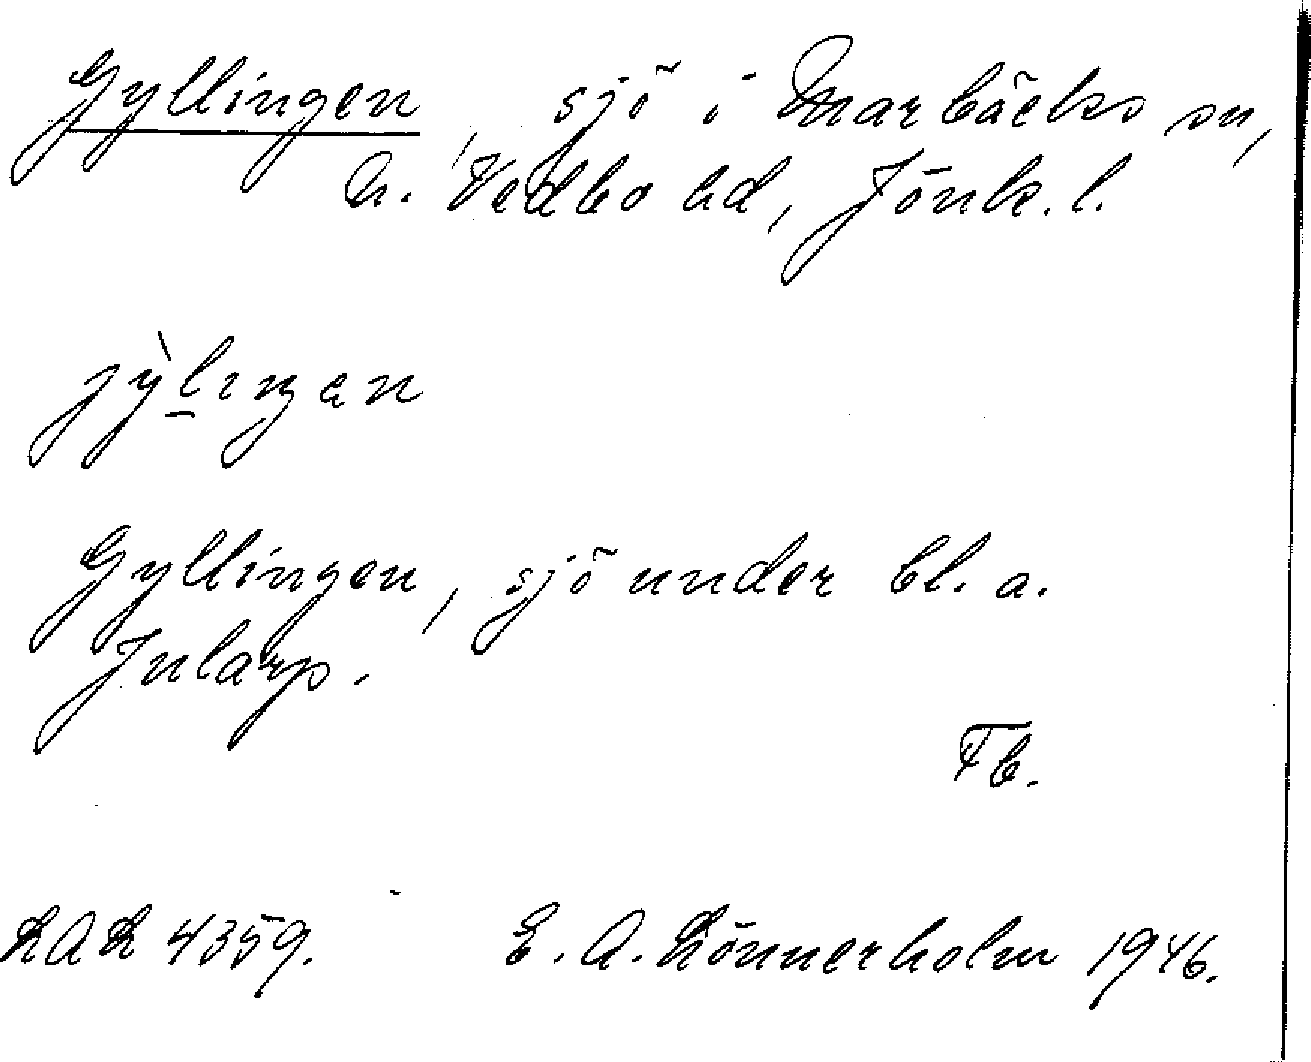 Gyllingen, sjö i Marbäcks sn,
N. Vedbo hd, Jönk. l.
jỳlıŋən
Gyllingen, sjö under bl. a.
Jularp.
Fb.
4359. E. A. Lönnerholm 1946.